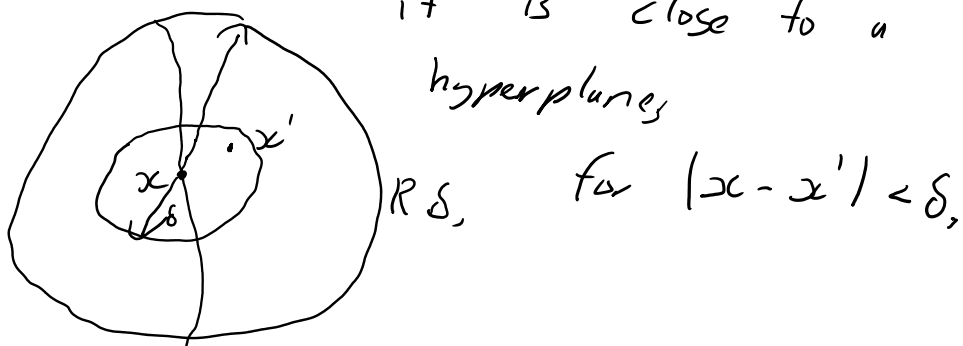 it is close to a
hyperplane,
x'
x
δ
Rδ,
for |x - x'| < δ,